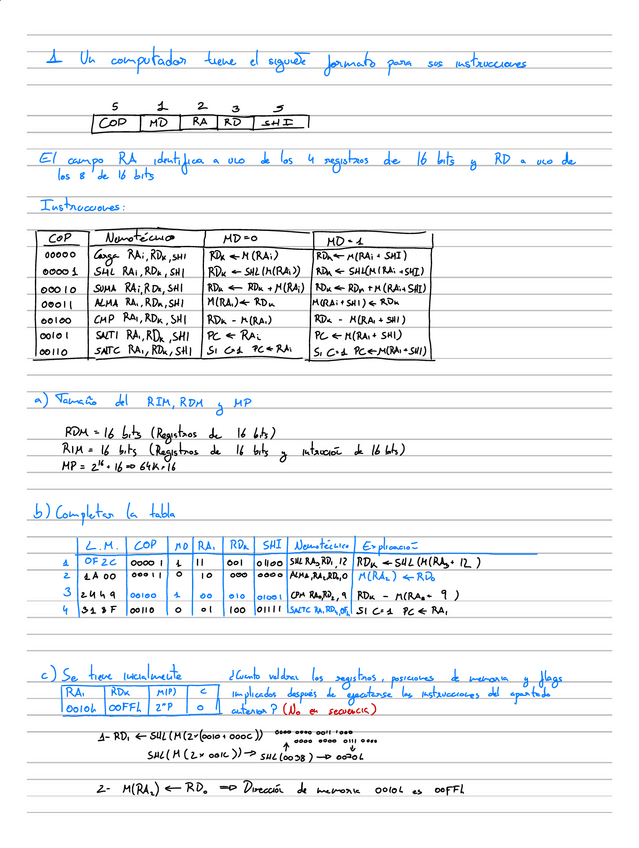 1 Un computador tiene el siguiente formato para sus instrucciones
5 1 2 3 5
COP MD RA RD SHI
El campo RA identifica a uno de los 4 registros de 16 bits y RD a uno de
los 8 de 16 bits
Instrucciones:
COP Nemotécnico MD=0 MD=1
00000 Carga RAi,RDk,SHI RDk ← M(RAi) RDk ← M(RAi + SHI)
00001 SHL RAi,RDk,SHI RDk ← SHL(M(RAi)) RDk ← SHL(M(RAi+SHI)
00010 SUMA RAi,RDk,SHI RDk ← RDk + M(RAi) RDk ← RDk + M(RAi+SHI)
00011 ALMA RAi,RDk,SHI M(RAi) ← RDk M(RAi+SHI) ← RDk
00100 CMP RAi,RDk,SHI RDk - M(RAi) RDk - M(RAi + SHI)
00101 SALTI RAi,RDk,SHI PC ← RAi PC ← M(RAi + SHI)
00110 SALTC RAi,RDk,SHI SI C=1 PC ← RAi SI C=1 PC ← M(RAi+SHI)
a) Tamaño del RIM, RDM y MP
RDM = 16 bits (Registros de 16 bits)
RIM = 16 bits (Registros de 16 bits y intrucción de 16 bits)
MP = 2^16 * 16 => 64K*16
b) Completar la tabla
L.M. COP MD RAi RDk SHI Nemotécnico Explicación
1 0F2C 00001 1 11 001 01100 SHL RA3,RD1,12 RDk ← SHL(M(RA3 + 12)
2 1A00 00011 0 10 000 0000 ALMA,RA2,RD0,0 M(RA2) ← RD0
3 2449 00100 1 00 010 01001 CPM RA0,RD2,9 RDk - M(RA0 + 9)
4 318F 00110 0 01 100 01111 SALTC RA1,RD4,0F SI C=1 PC ← RA1
c) Se tiene inicialmente ¿Cuánto valdrán los registros, posiciones de memoria y flags
RAi RDk M(P) C implicados después de ejecutarse las instrucciones del apartado
0010h 00FFh 2*P 0 anterior? (No en secuencia)
1- RD1 ← SHL(M(2*(0010+000C)) 0000 0000 0011 1000
0000 0000 0111 0000
SHL(M(2*001C)) → SHL(0038) → 0070h
2- M(RA2) ← RD0 => Dirección de memoria 0010h es 00FFh